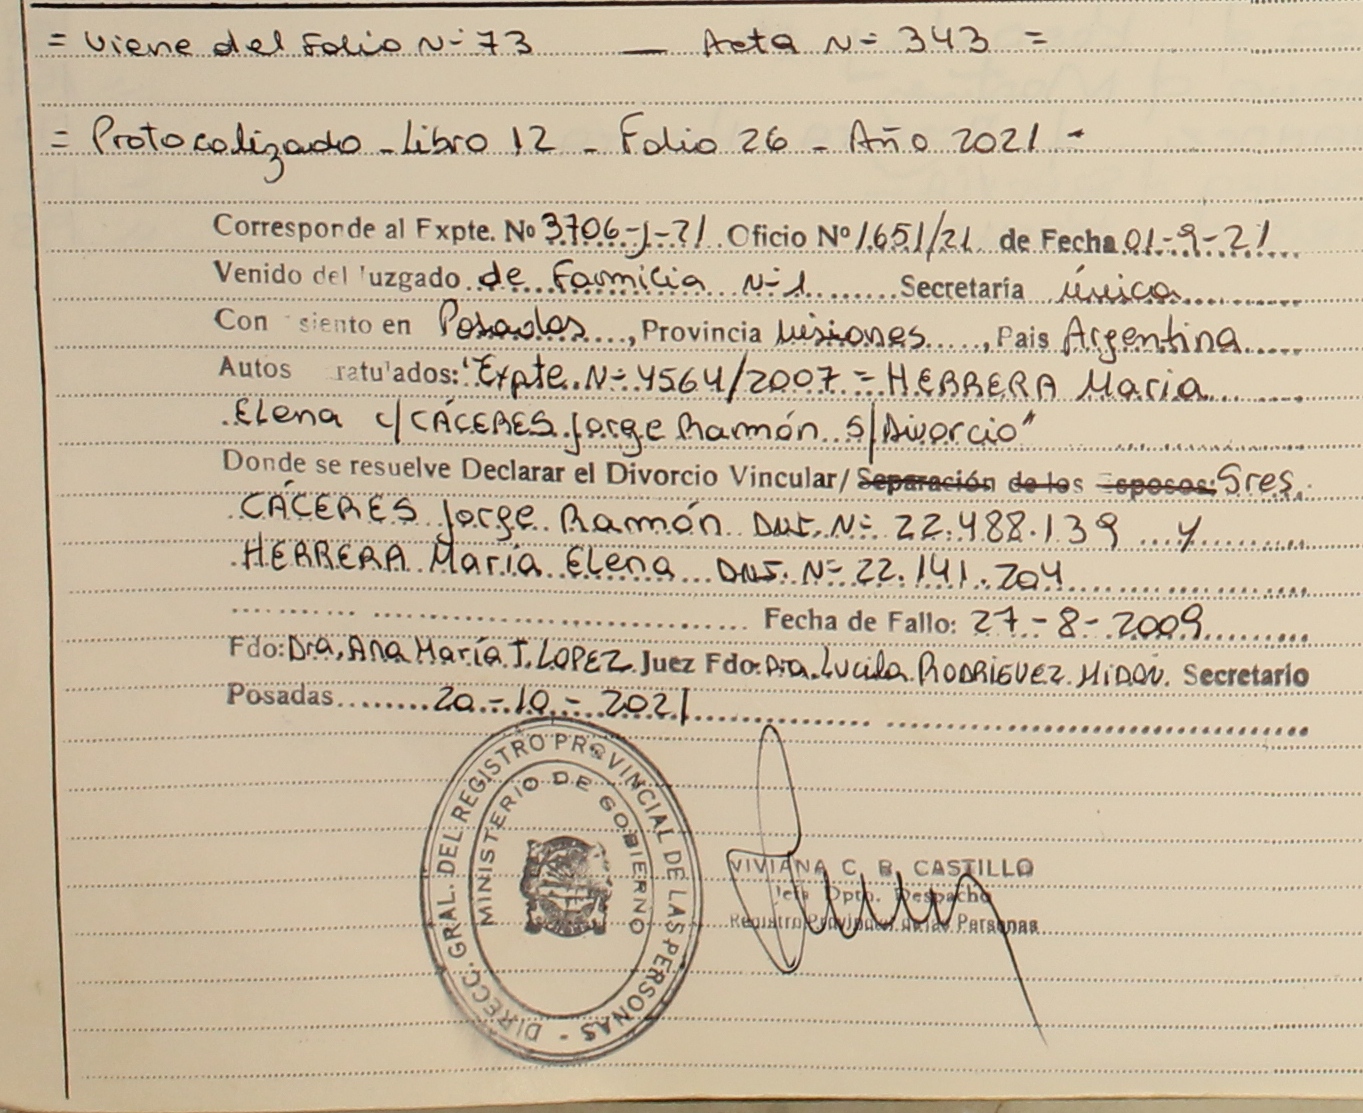 = Viene del Folio Nº 73 — Acta Nº 343 =
= Protocolizado - Libro 12 - Folio 26 - Año 2021 -
Corresponde al Expte. Nº 3706-J-21 Oficio Nº 1651/21 de Fecha 01-9-21
Venido del Juzgado de Familia Nº 1 Secretaría única
Con asiento en Posadas, Provincia Misiones, Pais Argentina
Autos caratulados: "Expte. Nº 4564/2007 = HERRERA María
Elena c/ CÁCERES Jorge Ramón S/Divorcio"
Donde se resuelve Declarar el Divorcio Vincular/ Separación de los Esposos: Sres.
CÁCERES Jorge Ramón DNI. Nº 22.488.139 y
HERRERA María Elena DNI. Nº 22.141.204
Fecha de Fallo: 27-8-2009
Fdo: Dra. Ana María T. LOPEZ Juez Fdo: Dra. Lucila RODRIGUEZ MIDON. Secretario
Posadas 20-10-2021
DIRECC. GRAL. DEL REGISTRO PROVINCIAL DE LAS PERSONAS -
MINISTERIO DE GOBIERNO
VIVIANA C. B. CASTILLO
Jefa Dpto. Despacho
Registro Provincial de las Personas